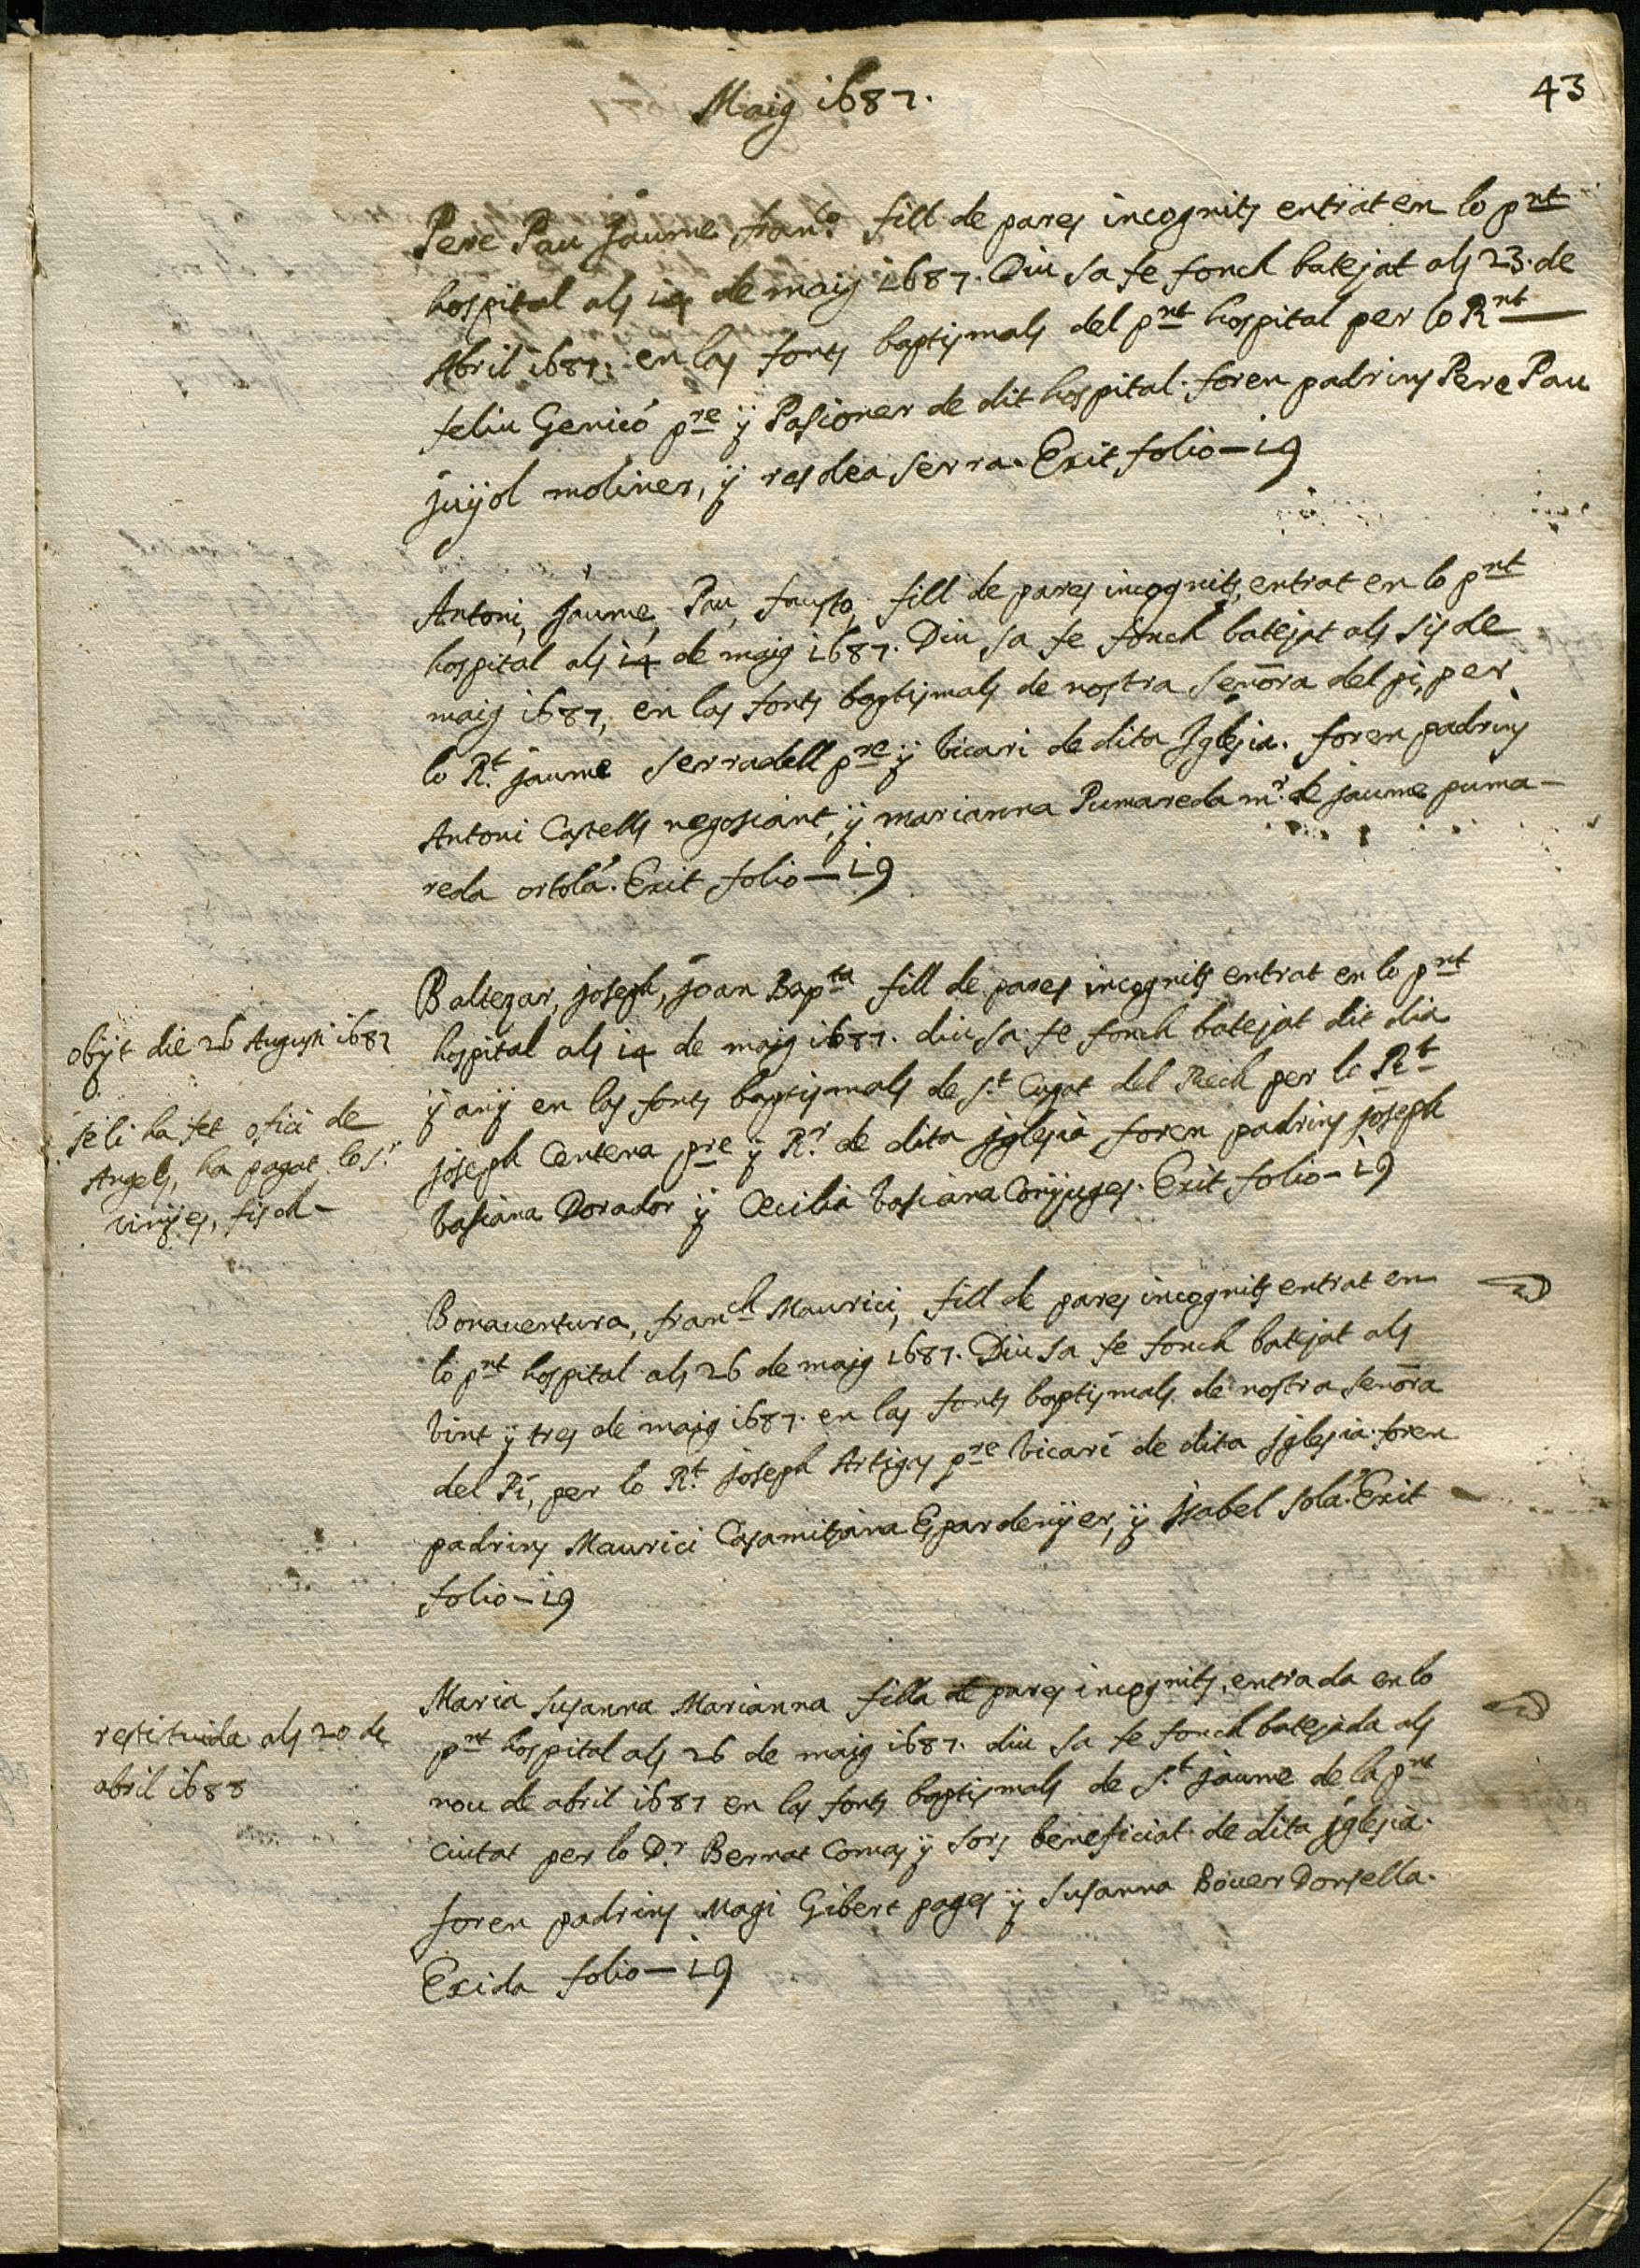 Maig 1687.
43
Pere Pau Jaume fran.co fill de pares incognits entrat en lo pnt
hospital als 14 de maig 1687. Diu sa fe fonch batejat als 23. de
Abril 1687. en las fonts baptismals del pnt hospital per lo Rnt
feliu Genicó pre ÿ Pasioner de dit hospital. foren padrins Pere Pau
juÿol moliner, ÿ resolea serra. Exit folio—19
Antoni, Jaume, Pau, fausto, fill de pares incognits, entrat en lo pnt
hospital als 14 de maig 1687. Diu sa fe fonch batejat als sis de
maig 1687, en las fonts baptismals de nostra señora del pi, per
lo Rt. jaume serradell pre ÿ vicari de dita Iglesia. foren padrins
Antoni Castells negosiant, ÿ marianna Pumareda mr. de jaume puma-
reda ortolá. Exit folio—19
Baltezar, joseph, joan Bapta fill de pares incognits entrat en lo pnt
hospital als 14 de maig 1687. diu sa fe fonch batejat dit dia
ÿ anÿ en las fonts baptismals de St Cugat del Rech per lo Rt
joseph Centena pre ÿ Rr. de dita jglesia foren padrins joseph
basiana Dorador ÿ Cecilia basiana Conÿuges. Exit folio—19
obÿt die 26 Augusti 1687
se li ha fet ofici de
Angels, ha pagat lo sr.
vinÿes, fisch-
Bonaventura, franch Maurici, fill de pares incognits entrat en
lo pnt hospital als 26 de maig 1687. Diu sa fe fonch batejat als
vint ÿ tres de maig 1687. en las fonts baptismals de nostra señora
del Pi, per lo Rt. joseph Artigas pre vicari de dita jglesia. foren
padrins Maurici Casamitjana Espardenÿer, ÿ Isabel solá. Exit
folio—19
Maria Susanna Marianna filla de pares incognits, entrada en lo
pnt hospital als 26 de maig 1687. diu sa fe fonch batejada als
nou de abril 1687 en las fonts baptismals de St. jaume de la pnt
Ciutat per lo Dr. Bernat Comas ÿ sors beneficiat de dita jglesia.
foren padrins Magi Gibert pages ÿ Susanna Bover Donsella.
Exida folio—19
restituida als 20 de
abril 1688